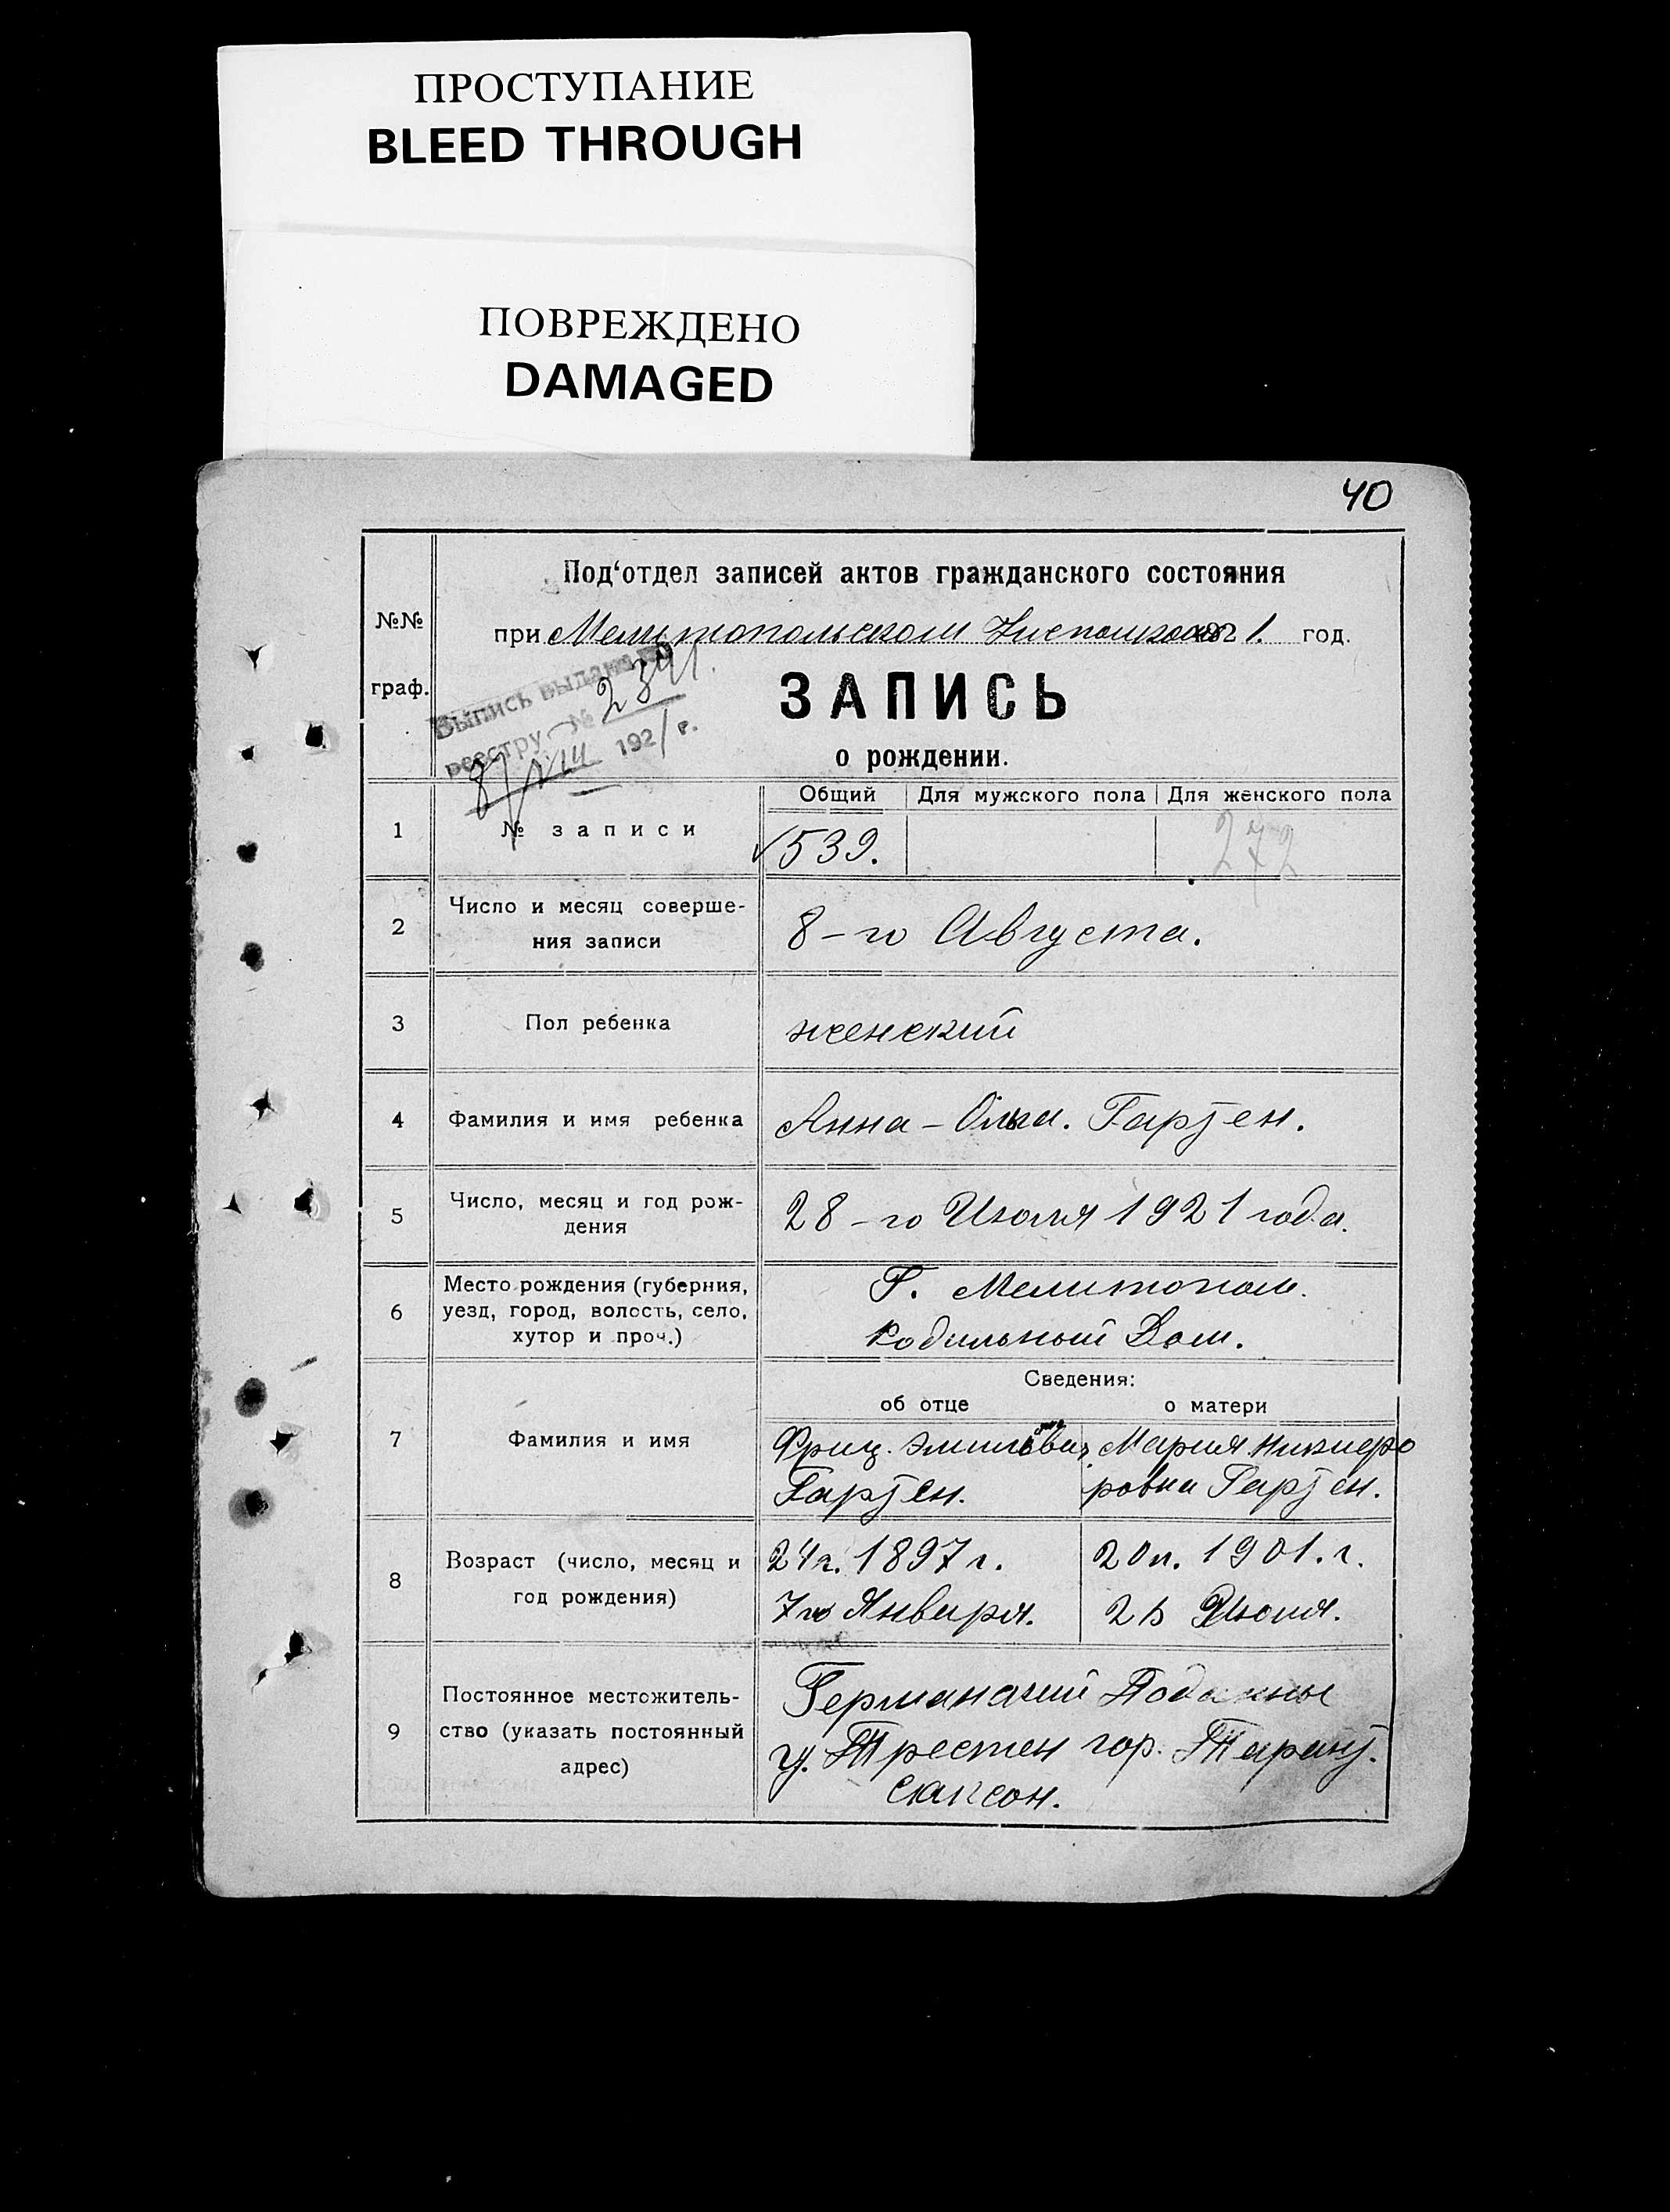 ПРОСТУПАНИЕ
BLEED THROUGH
ПОВРЕЖДЕНО
DAMAGED
40
№№
граф.
Под‘отдел записей актов гражданского состояния
при Мелитопольском 1921. год.
Выпись выдана по
реестру № 2341
8/VIII 1921 г.
ЗАПИСЬ
о рождении.
Общий Для мужского пола Для женского пола
1 № записи 539. 272
2 Число и месяц соверше-
ния записи
8-го Августа.
3 Пол ребенка женский
4 Фамилия и имя ребенка Анна-Ольга. Гартен.
5 Число, месяц и год рож-
дения
28-го Июля 1921 года.
6 Место рождения (губерния,
уезд, город, волость, село,
хутор и проч.)
Г. Мелитополь.
Родильный Дом.
Сведения:
об отце о матери
7 Фамилия и имя
Фриц. Эмильевич
Гартен.
Мария
ровна Гартен.
8 Возраст (число, месяц и
год рождения)
24 г. 1897 г.
7го Января.
20 л. 1901. г.
Июля.
9 Постоянное местожитель-
ство (указать постоянный
адрес)
Подданны
гор.
саксон.